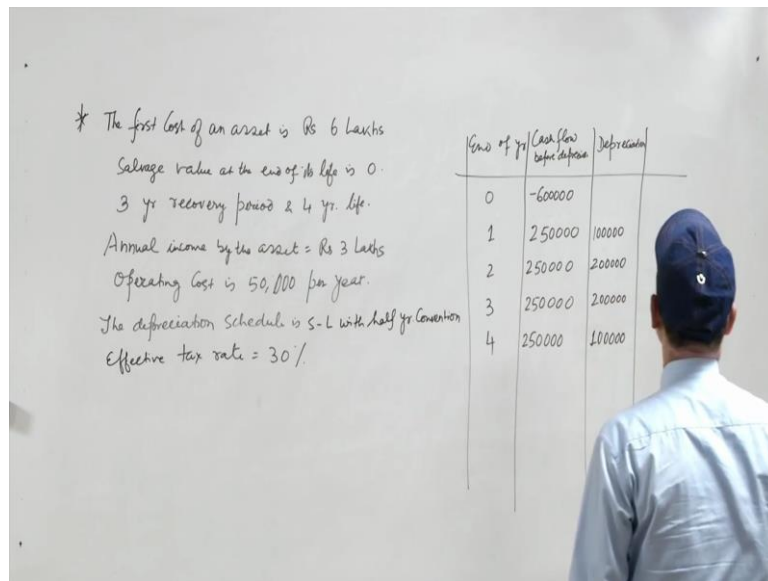 * The first Cost of an asset is Rs 6 Lakhs
Salvage value at the end of its life is 0.
3 yr recovery period & 4 yr. life.
Annual income by the asset = Rs 3 Lakhs
Operating Cost is 50,000 per year.
The depreciation schedule is S-L with half yr. Convention
Effective tax rate = 30%
End of yr Cash flow before deprecia Depreciation
0 -600000
1 250000 100000
2 250000 200000
3 250000 200000
4 250000 100000